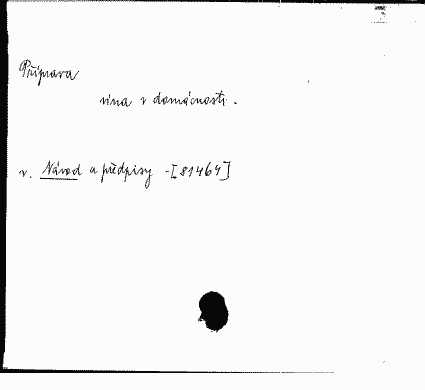 Příprava
vína v domácnosti.
v. Návod a předpisy - [81464]